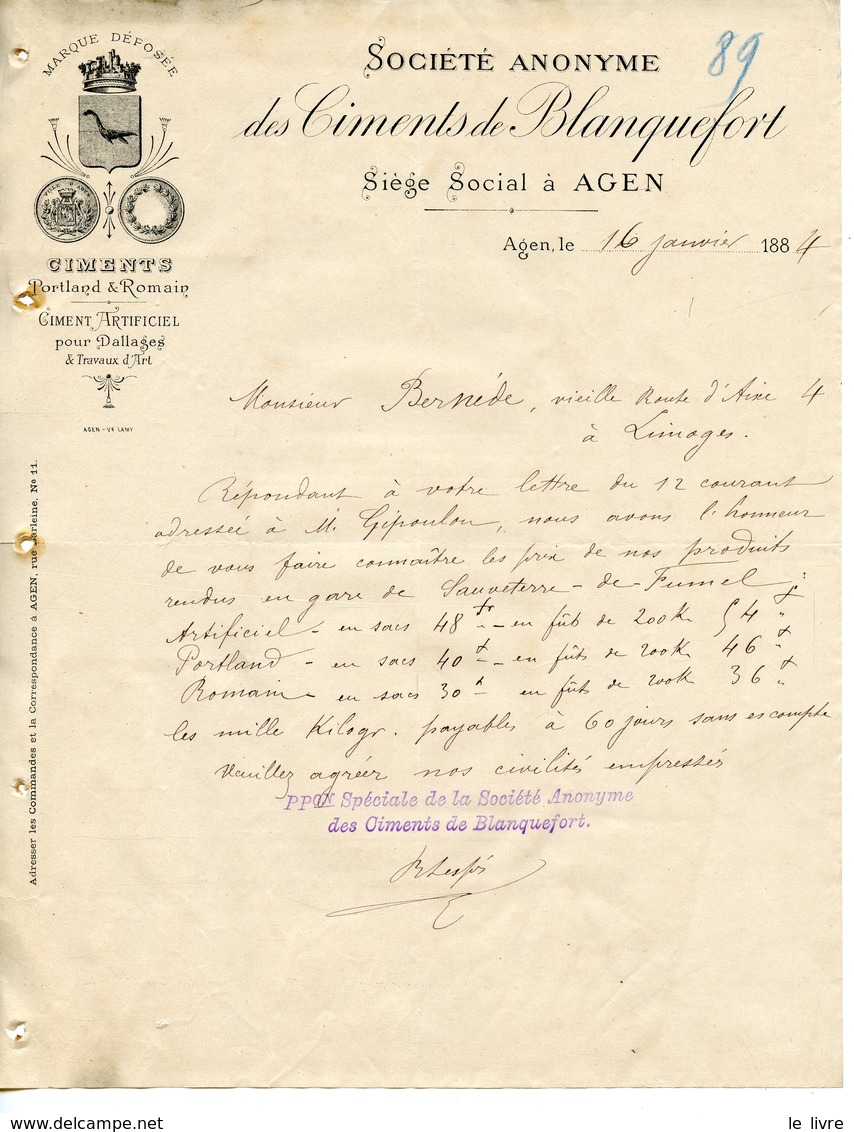 MARQUE DÉPOSÉE
CIMENTS
Portland & Romain
CIMENT ARTIFICIEL
pour Dallages
& Travaux d'Art
AGEN - VR LAMY
Adresser les Commandes et la Correspondance à AGEN, rue Darleine, No 11.
89
SOCIÉTÉ ANONYME
des Ciments de Blanquefort
Siège Social à AGEN
Agen, le 16 janvier 1884
Monsieur Bernède, vieille Route d'Aixe 4
à Limoges.
Répondant à votre lettre du 12 courant
adressée à M. Gipoulou, nous avons l'honneur
de vous faire connaître les prix de nos produits
rendus en gare de Sauveterre-de-Fumel :
Artificiel - en sacs 48 f - en fûts de 200K 54 f "
Portland - en sacs 40 f - en fûts de 200K 46 f "
Romain - en sacs 30 f en fûts de 200K 36 f "
les mille Kilogr. payables à 60 jours sans escompte
Veuillez agréer nos civilités empressées
PPON Spéciale de la Société Anonyme
des Ciments de Blanquefort.
le livre